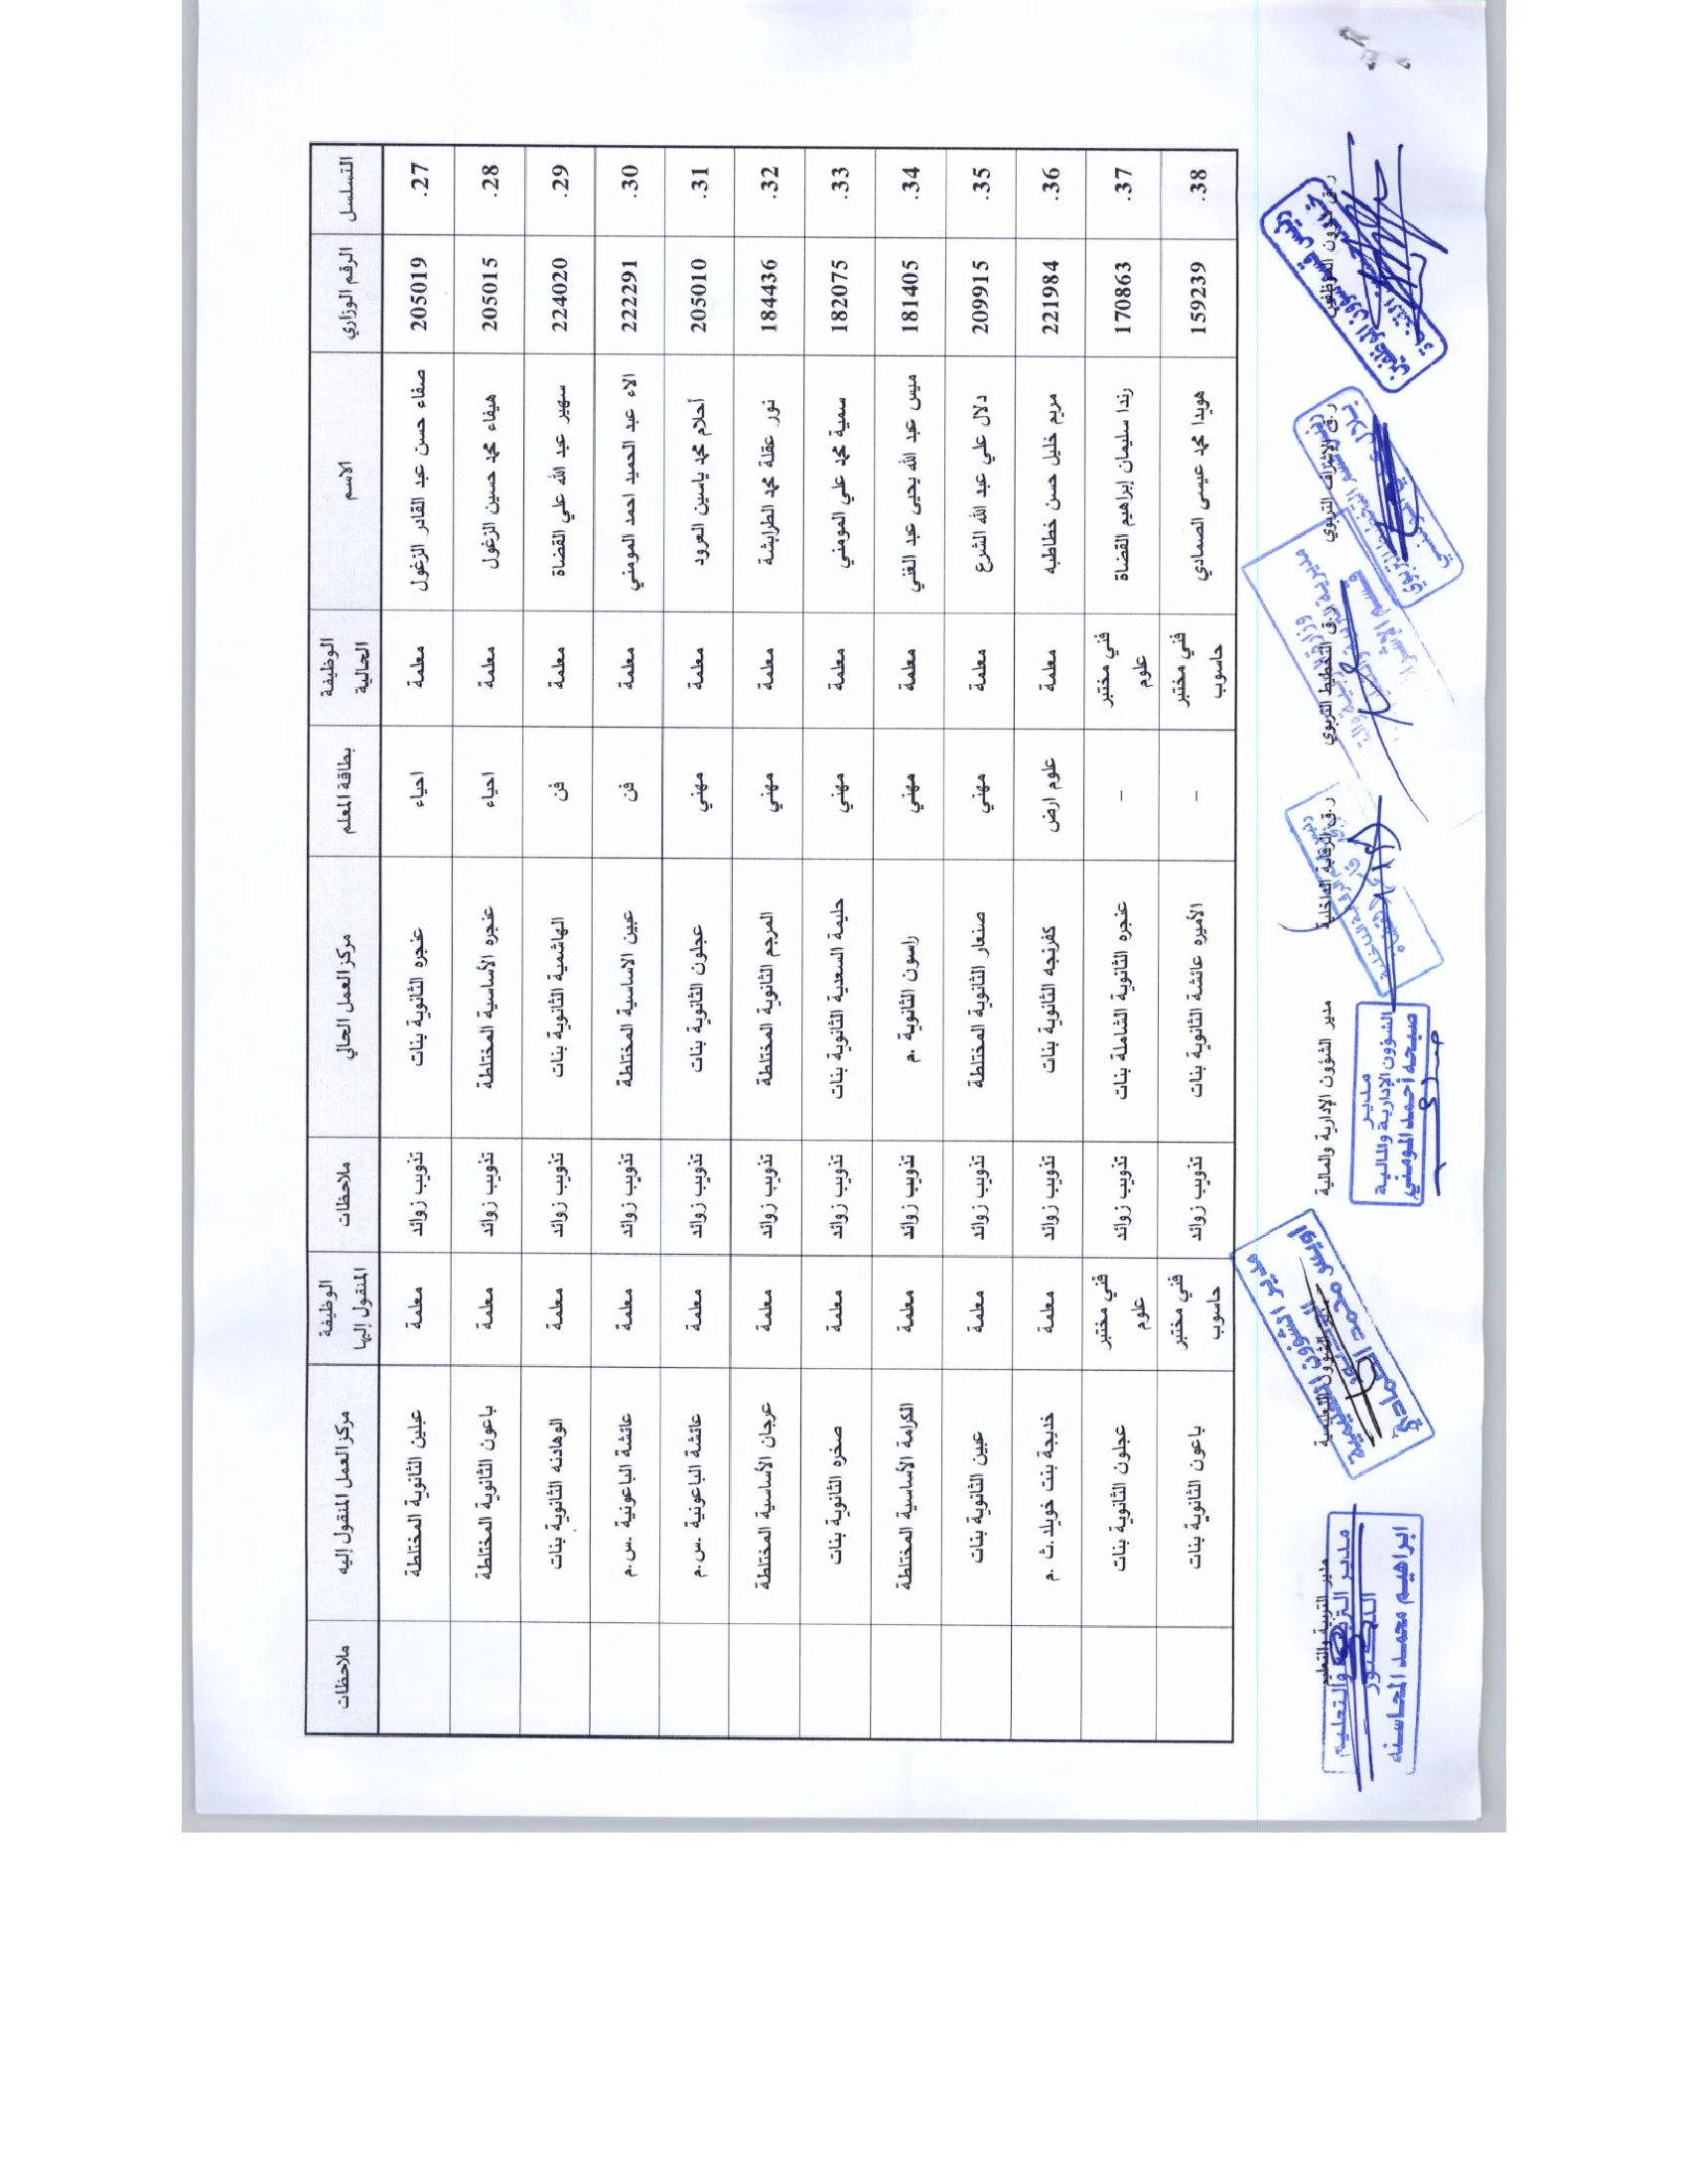 التسلسل الرقم الوزاري الاسم الوظيفة الحالية بطاقة المعلم مركز العمل الحالي ملاحظات الوظيفة المنقول إليها مركز العمل المنقول إليه ملاحظات
27. 205019 صفاء حسن عبد القادر الزغول معلمة احياء عنجره الثانوية بنات تذويب زوائد معلمة عبلين الثانوية المختلطة
28. 205015 هيفاء محمد حسين الزغول معلمة احياء عنجره الأساسية المختلطة تذويب زوائد معلمة باعون الثانوية المختلطة
29. 224020 سهير عبد الله علي القضاة معلمة فن الهاشمية الثانوية بنات تذويب زوائد معلمة الوهادنه الثانوية بنات
30. 222291 الاء عبد الحميد احمد المومني معلمة فن عبين الاساسية المختلطة تذويب زوائد معلمة عائشة الباعونية .س.م
31. 205010 أحلام محمد ياسين العرود معلمة مهني عجلون الثانوية بنات تذويب زوائد معلمة عائشة الباعونية .س.م
32. 184436 نور عقلة محمد الطرابشة معلمة مهني المرجم الثانوية المختلطة تذويب زوائد معلمة عرجان الأساسية المختلطة
33. 182075 سمية محمد علي المومني معلمة مهني حليمة السعدية الثانوية بنات تذويب زوائد معلمة صخره الثانوية بنات
34. 181405 ميس عبد الله يحيى عبد الغني معلمة مهني راسون الثانوية .م تذويب زوائد معلمة الكرامة الأساسية المختلطة
35. 209915 دلال علي عبد الله الشرع معلمة مهني صنعار الثانوية المختلطة تذويب زوائد معلمة عبين الثانوية بنات
36. 221984 مريم خليل حسن خطاطبه معلمة علوم ارض كفرنجه الثانوية بنات تذويب زوائد معلمة خديجة بنت خويلد .ث .م
37. 170863 رندا سليمان إبراهيم القضاة فني مختبر علوم – عنجره الثانوية الشاملة بنات تذويب زوائد فني مختبر علوم عجلون الثانوية بنات
38. 159239 هويدا محمد عيسى الصمادي فني مختبر حاسوب – الأميره عائشة الثانوية بنات تذويب زوائد فني مختبر حاسوب باعون الثانوية بنات
ر.ق شؤون الموظفين ر.ق الإشراف التربوي ر.ق التخطيط التربوي ر.ق الرقابة الداخلية مدير الشؤون الإدارية والمالية مدير الشؤون التعليمية مدير التربية والتعليم
مدير
الشؤون الإدارية والمالية
صبحه أحمد المومني
مدير الشؤون التعليمية
مدير التربية والتعليم
الدكتور
ابراهيم محمد المحاسنه